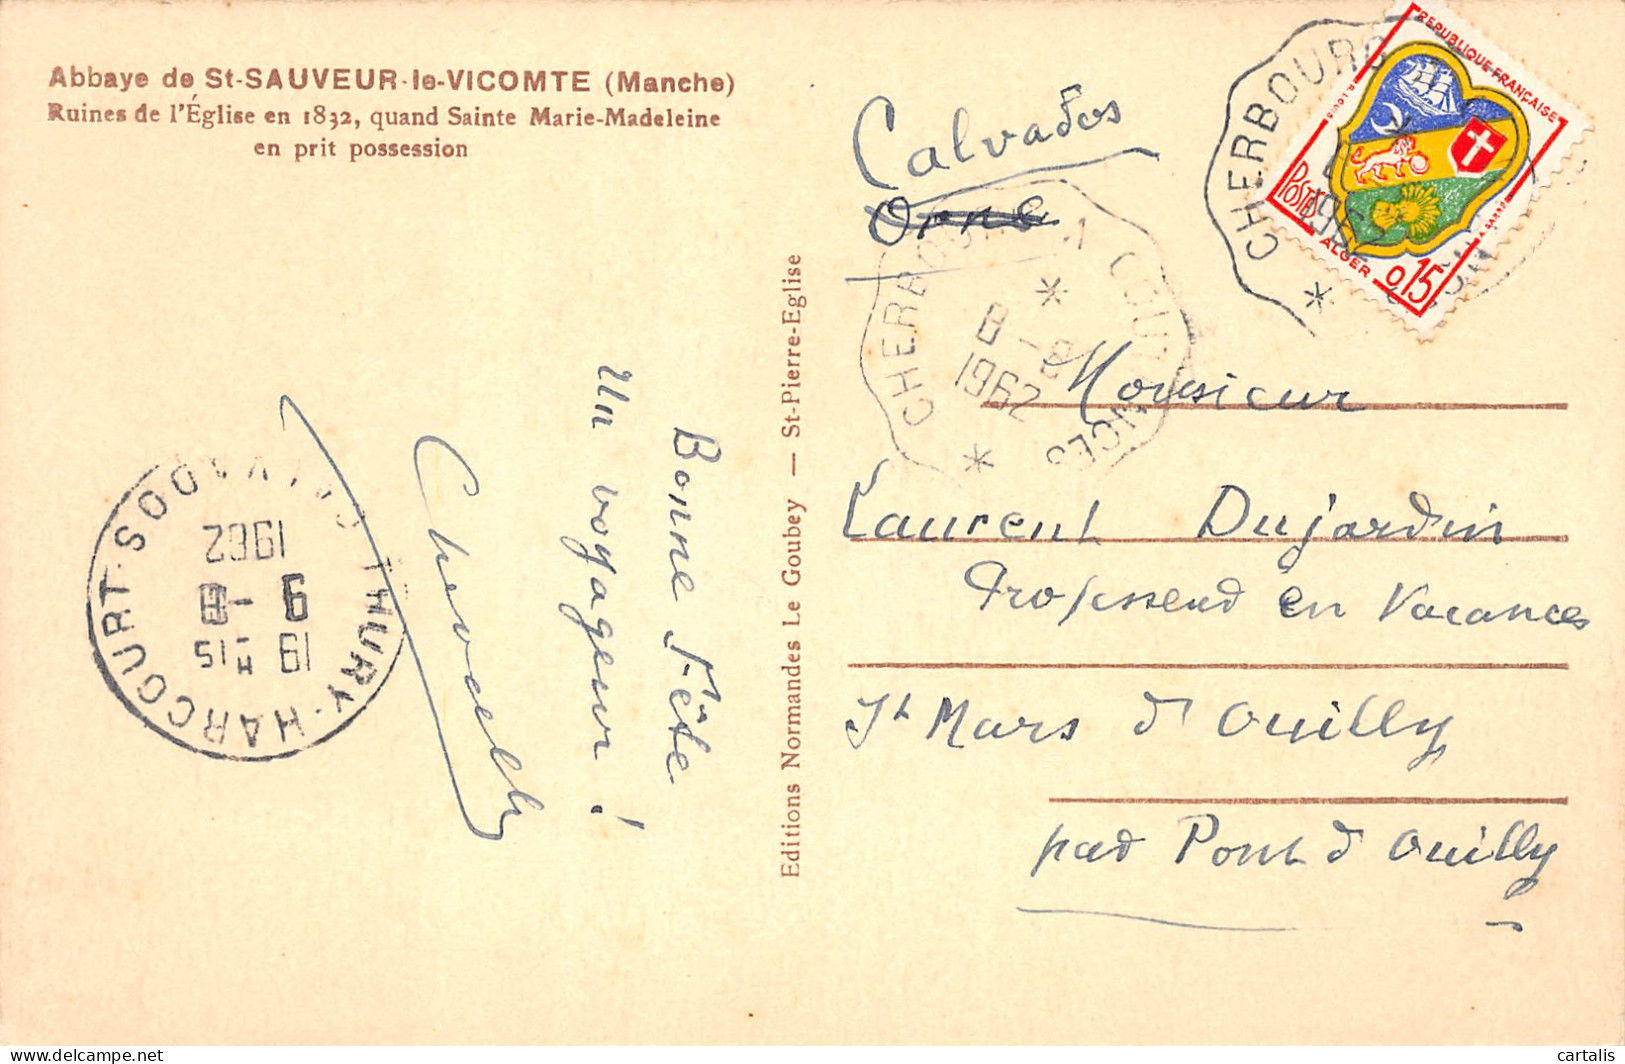 Abbaye de St-SAUVEUR-le-VICOMTE (Manche)
Ruines de l'Église en 1832, quand Sainte Marie-Madeleine
en prit possession
Bonne Fête
Un voyageur !
THURY-HARCOURT·
CALVADOS
19 H 15
9 - 8
1962
Editions Normandes Le Goubey — St-Pierre-Eglise
Calvados
Orne
CHERBOURG A COUTANCES
8 - 8
1962
CHERBOURG
1962
REPUBLIQUE FRANÇAISE
POSTES
ALGER
0,15
Monsieur
Laurent Dujardin
Professeur en Vacances
St Mars d'Ouilly
par Pont d'Ouilly
cartalis